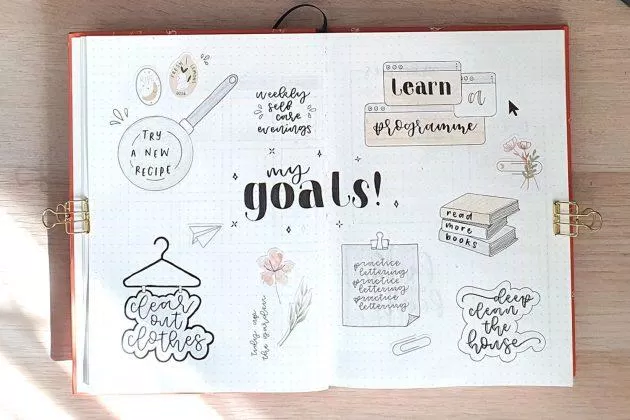 TRY
A NEW
RECIPE
weekly
self
care
evenings
learn
a
programme
my
goals!
read
more
books
clear
out
clothes
tidy up
the garden
practice
lettering
practice
lettering
practice
lettering
deep
clean
the
house